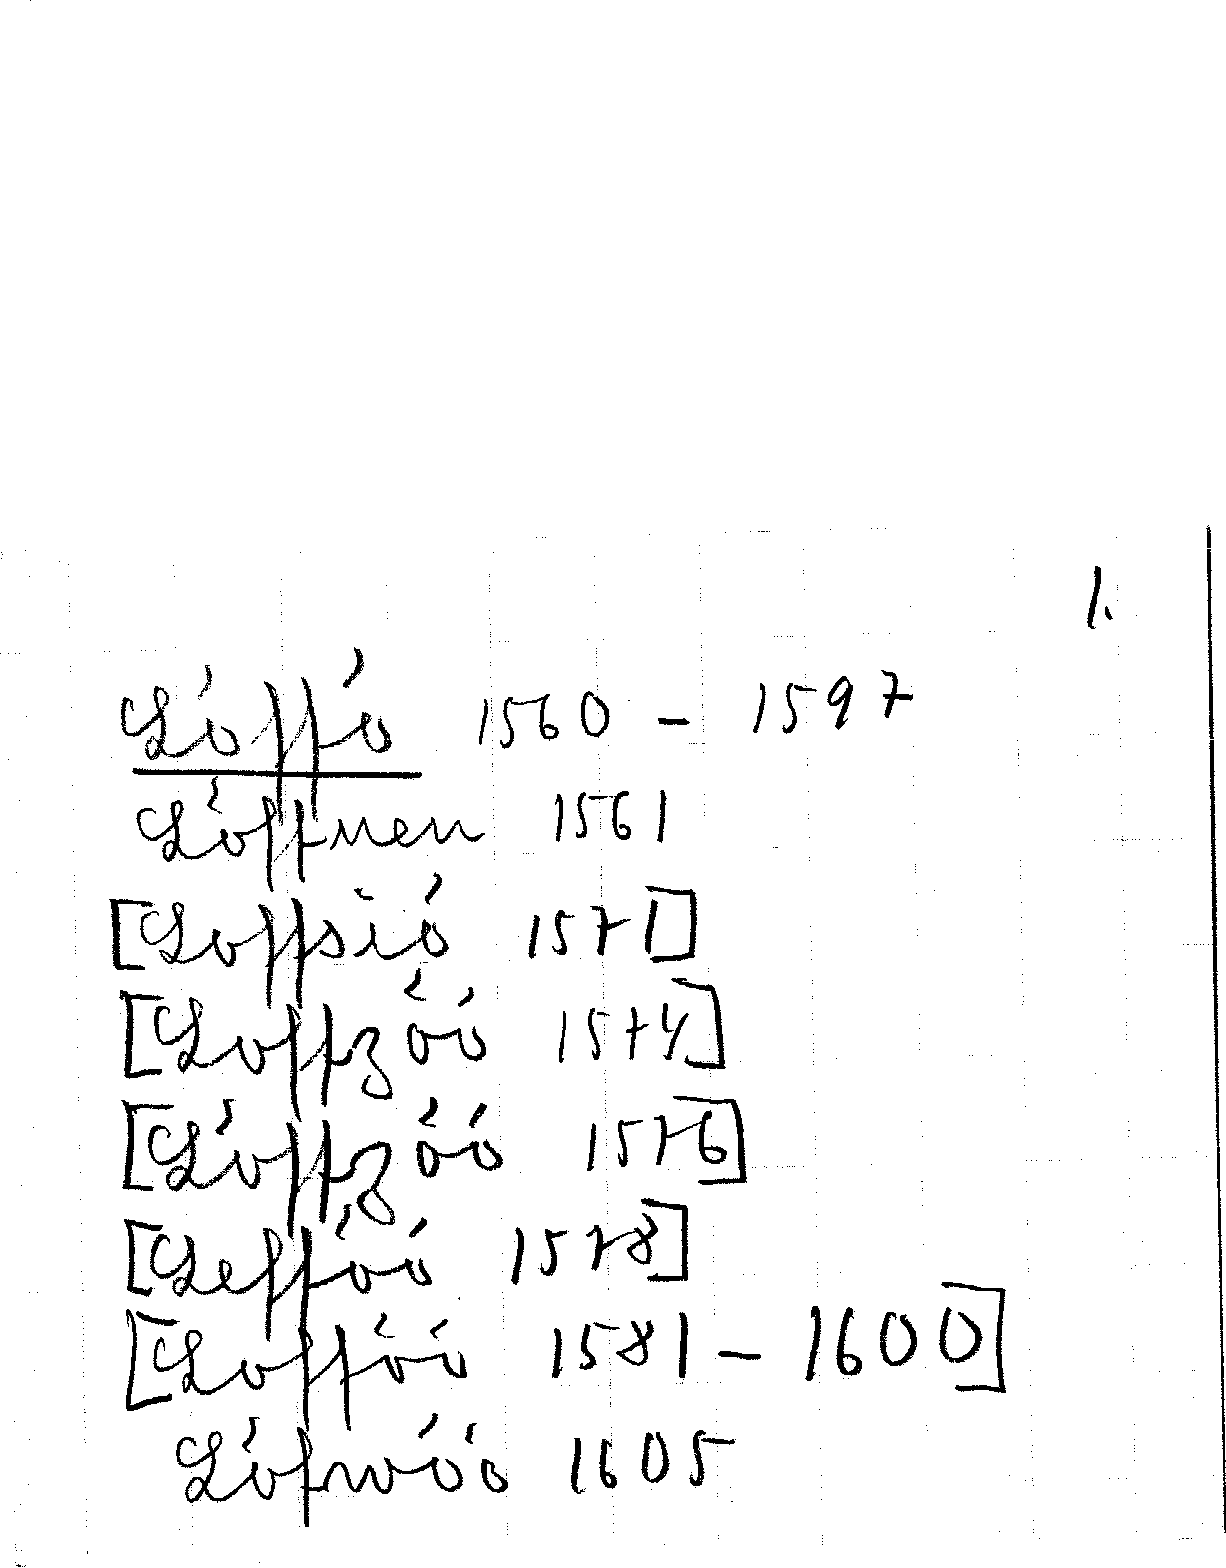 1.
Lóffó 1560 – 1597
Lóffnen 1561
[Loffsió 1571]
[Loffzóó 1574]
[Lóffzóó 1576]
[Leffóó 1578]
[Loffóó 1581 – 1600]
1605